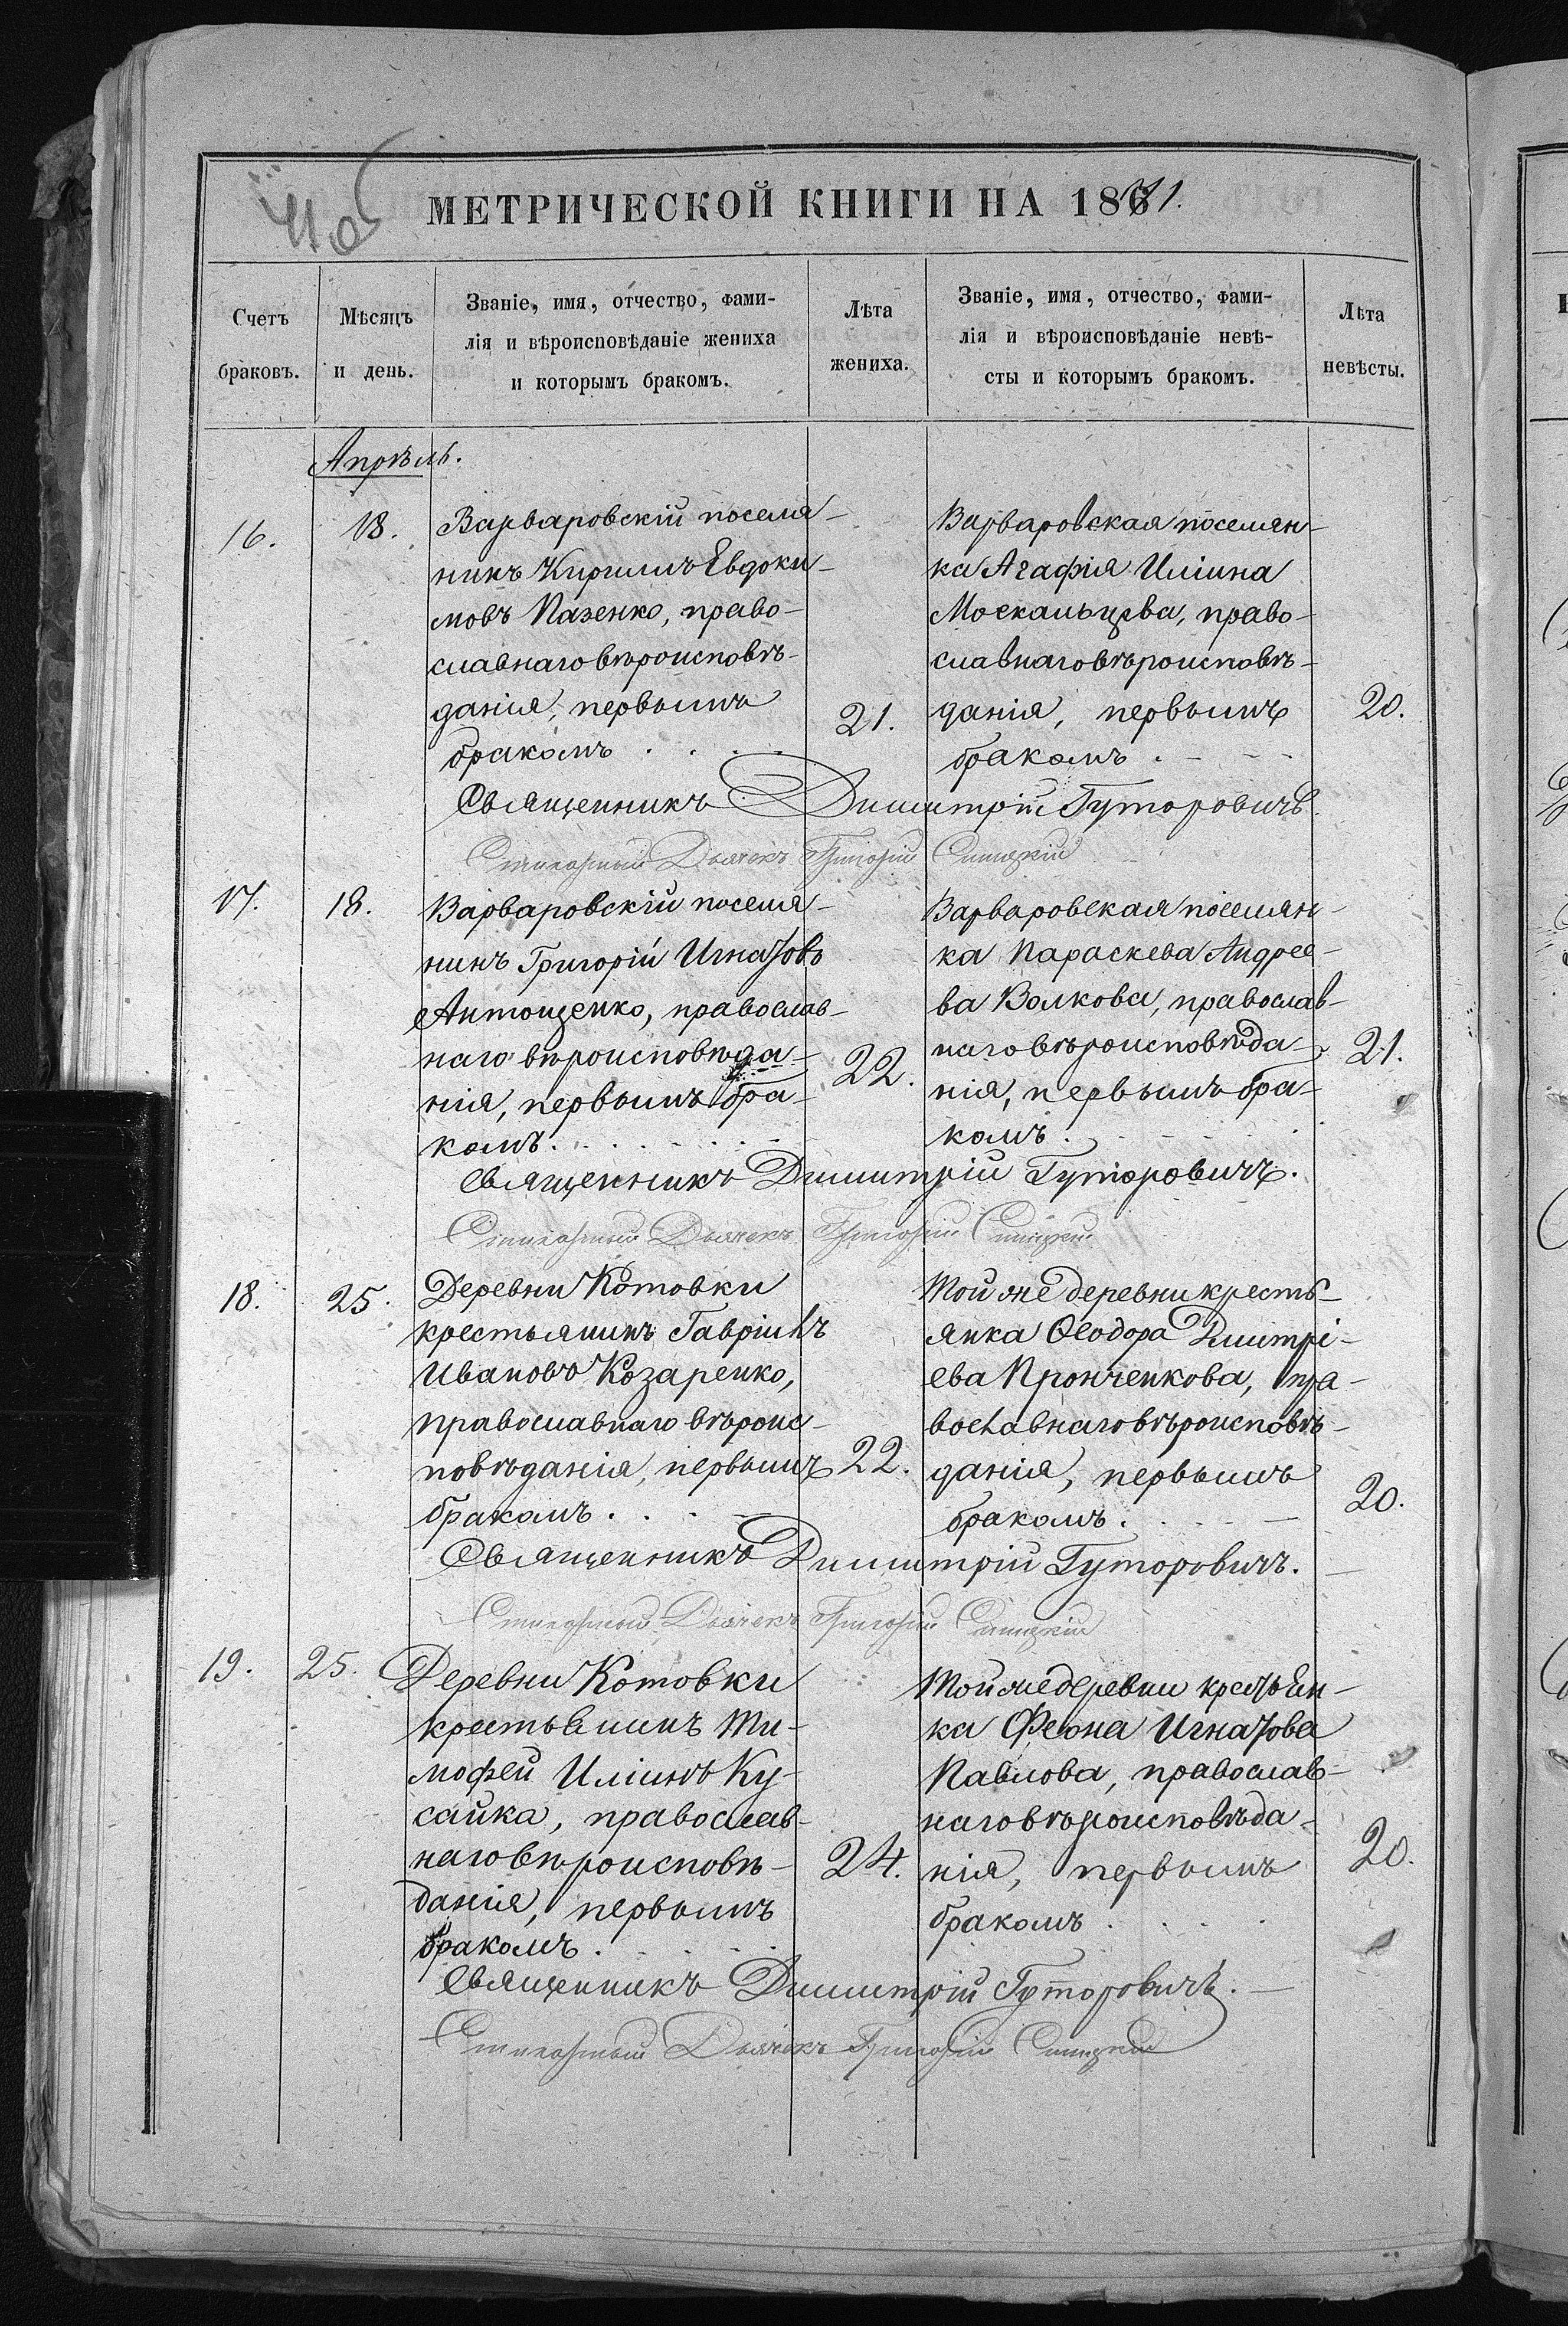 МЕТРИЧЕСКОЙ КНИГИ НА 1871.
Счетъ браковъ.
Мѣсяцъ и день.
Званіе, имя, отчество, фами-
лія и вѣроисповѣданіе жениха
и которымъ бракомъ.
Лѣта жениха.
Званіе, имя, отчество, фами-
лія и вѣроисповѣданіе невѣ-
сты и которымъ бракомъ.
Лѣта невѣсты.
Апрѣль.
16.
18.
Варваровскій поселя-
нинъ Кирилъ Евдоки-
мовъ Пазенко, право-
славнаго вѣроисповѣ-
данія, первымъ
бракомъ
21.
Варваровская поселян-
ка Агафія Иліина
Москальцева, право-
славнаго вѣроисповѣ-
данія, первымъ
бракомъ.
20.
Священникъ Димитрій Гуторовичъ.
Стихарный Дьячекъ Григорій
17.
18.
Варваровскій поселя-
нинъ Григорій Игнатовъ
Антощенко, православ-
наго вѣроисповѣда-
нія, первымъ бра-
комъ.
22.
Варваровская поселян-
ка Параскева Андрее-
ва Волкова, православ-
наго вѣроисповѣда-
нія, первымъ бра-
комъ.
21.
Священникъ Димитрій Гуторовичъ.
Стихарный Дьячекъ Григорій
18.
25.
Деревни Котовки
крестьянинъ Гавріилъ
Ивановъ Козаренко,
православнаго вѣроис-
повѣданія, первымъ
бракомъ.
22.
Той же деревни кресть-
янка Ѳеодора Дмитрі-
ева Пронченкова, пра-
вославнаго вѣроисповѣ-
данія, первымъ
бракомъ.
20.
Священникъ Димитрій Гуторовичъ.
Стихарный Дьячекъ Григорій
19.
25.
Деревни Котовки
крестьянинъ Ти-
мофей Иліинъ Ку-
сайка, православ-
наго вѣроисповѣ-
данія, первымъ
бракомъ.
24.
Той же деревни крестьян-
ка Феона Игнатова
Павлова, православ-
наго вѣроисповѣда-
нія, первымъ
бракомъ.
20.
Священникъ Димитрій Гуторовичъ.
Стихарный Дьячекъ Григорій